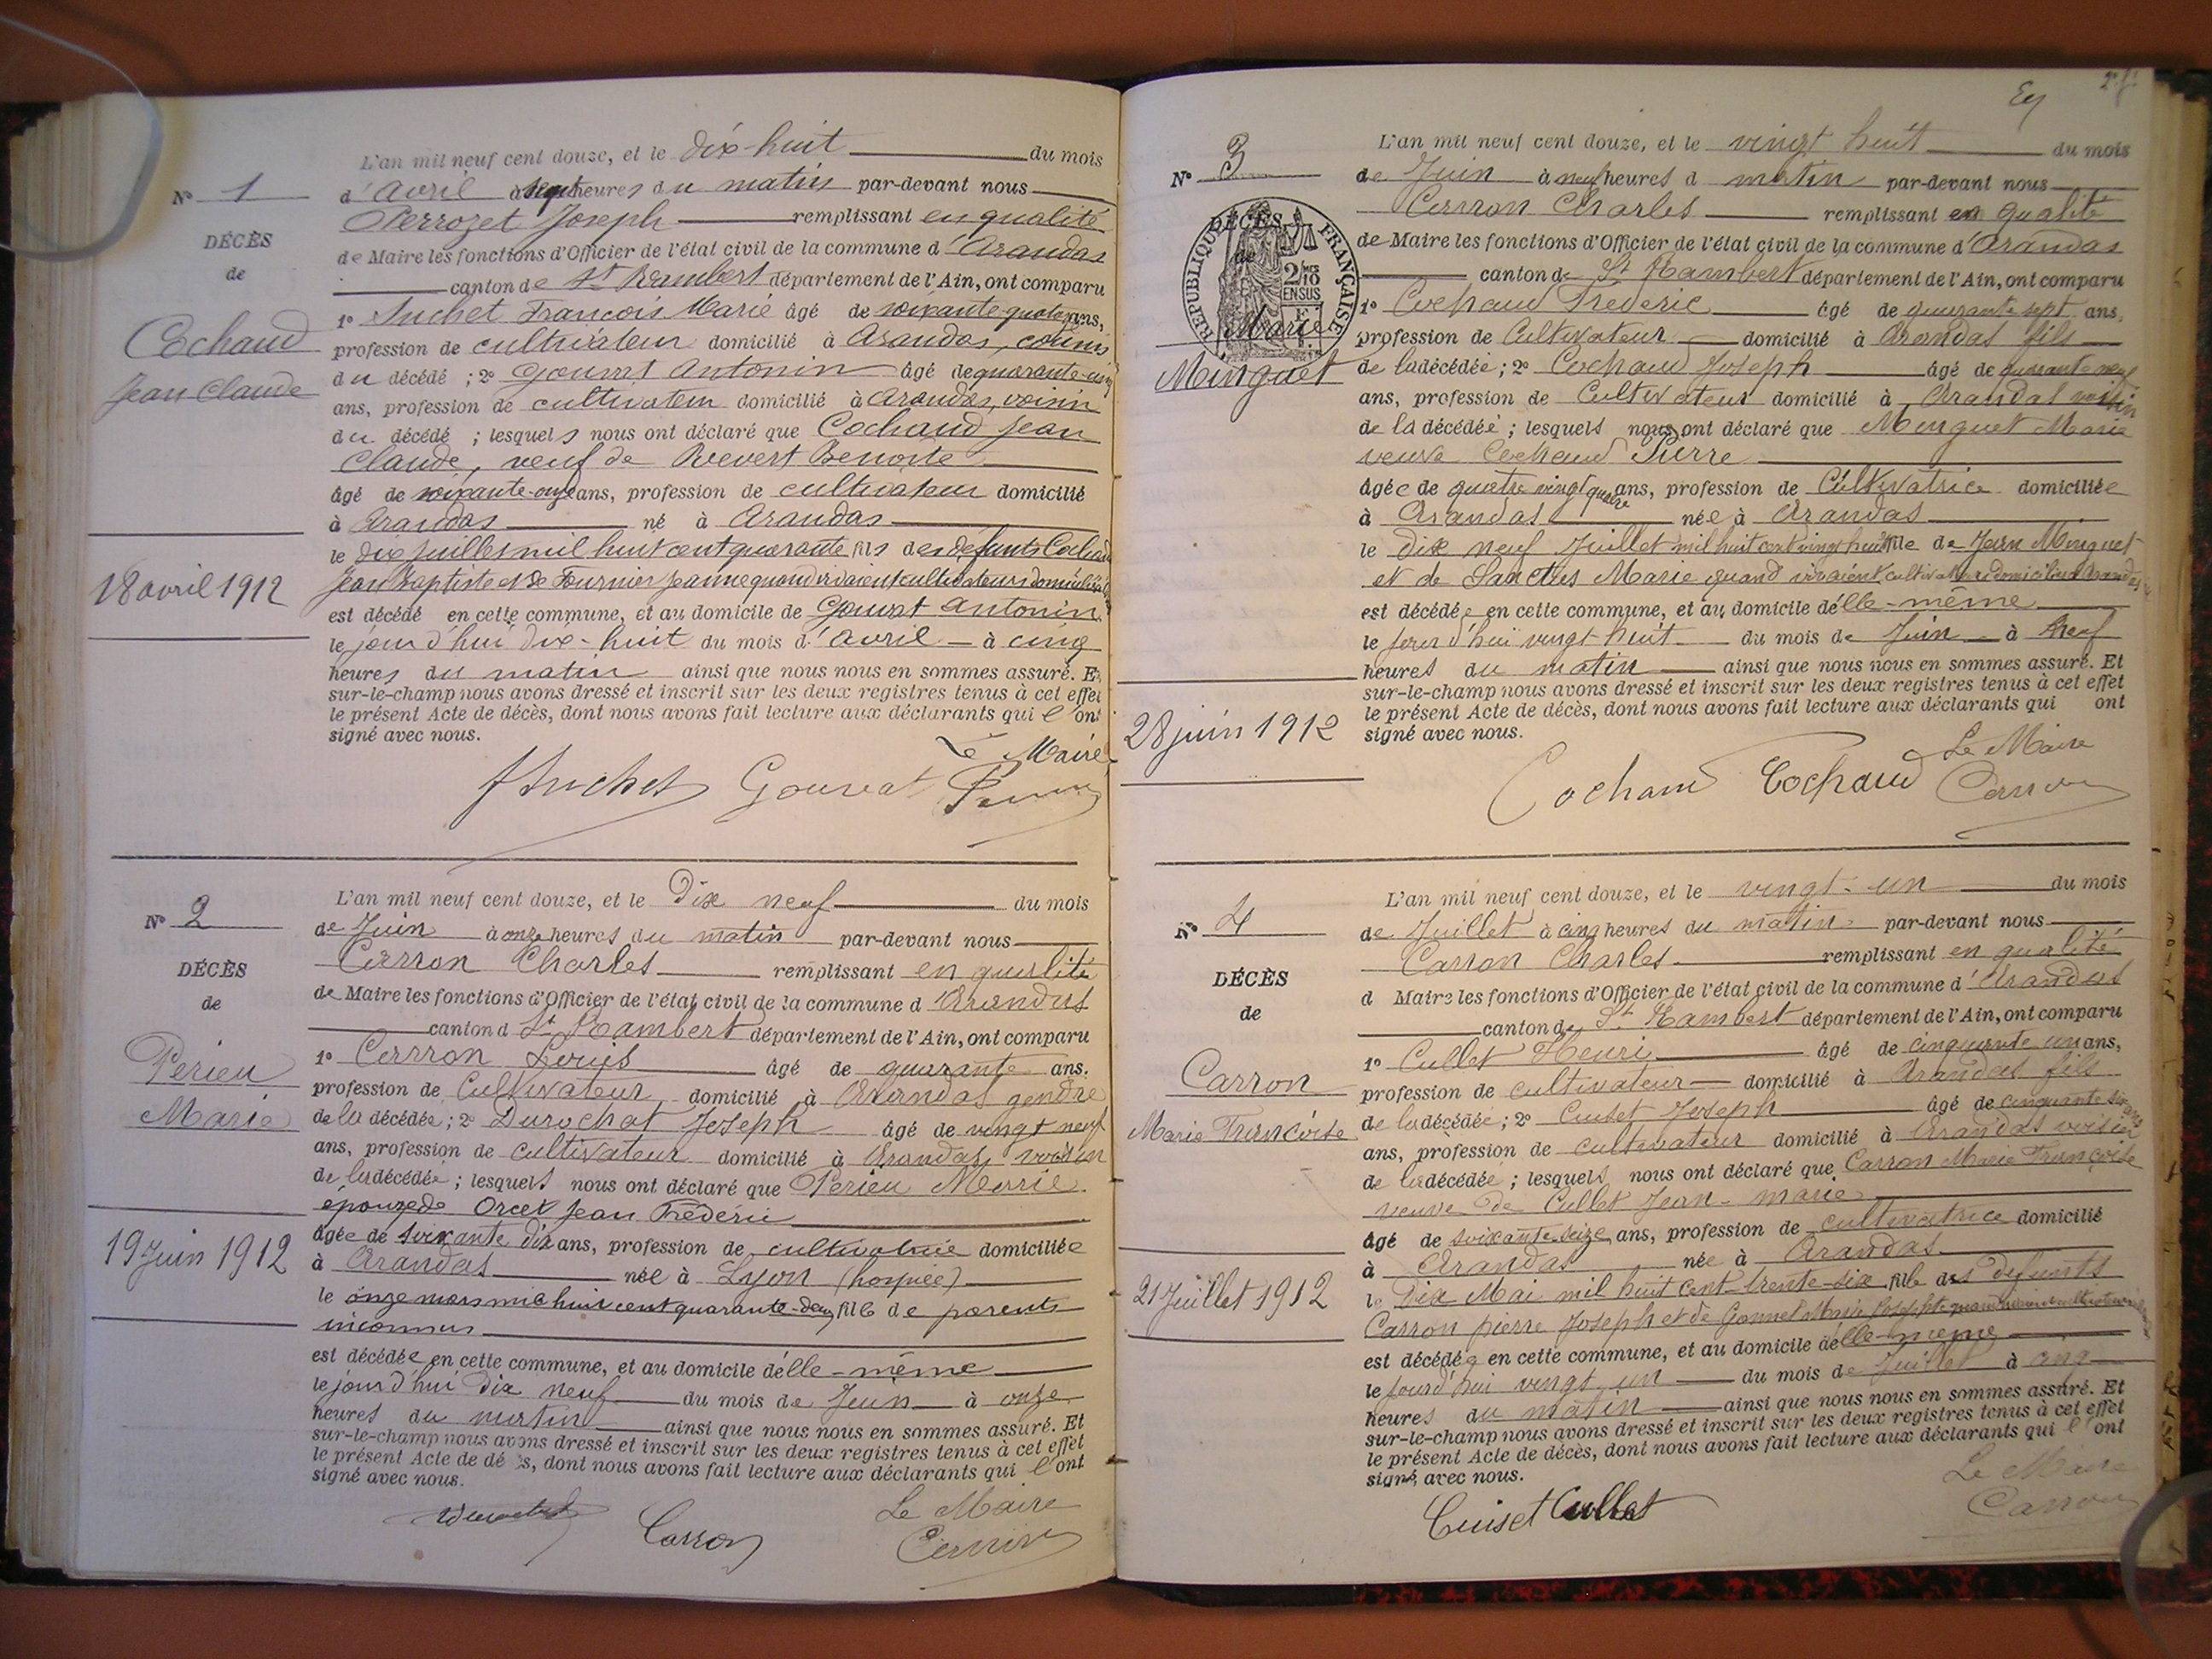 N° 1
DÉCÈS
de
Cochaud
Jean Claude
18 avril 1912
L'an mil neuf cent douze, et le dix-huit du mois
d'avril à sept heures du matin par-devant nous
Perrozet Joseph remplissant en qualité
de Maire les fonctions d'Officier de l'état civil de la commune d'Arandas
canton de St Rambert département de l'Ain, ont comparu
1° Juchet François Marie âgé de soixante-quatre ans,
profession de cultivateur domicilié à Arandas, cousin
du décédé ; 2° Gouvat Antonin âgé de quarante-cinq
ans, profession de cultivateur domicilié à Arandas, voisin
du décédé ; lesquels nous ont déclaré que Cochaud Jean
Claude, veuf de Revert Benoite
âgé de soixante-onze ans, profession de cultivateur domicilié
à Arandas né à Arandas
le dix juillet mil huit cent quarante fils des défunts Cochaud
Jean Baptiste et de Fournier Jeanne quand vivaient cultivateurs domiciliés
est décédé en cette commune, et au domicile de Gouvat Antonin
le jour d'hui dix-huit du mois d'avril à cinq
heures du matin ainsi que nous nous en sommes assuré. Et
sur-le-champ nous avons dressé et inscrit sur les deux registres tenus à cet effet
le présent Acte de décès, dont nous avons fait lecture aux déclarants qui l'ont
signé avec nous.
Le Maire
Gouvat
N° 2
DÉCÈS
de
Perieu
Marie
19 Juin 1912
L'an mil neuf cent douze, et le Dix neuf du mois
de Juin à onze heures du matin par-devant nous
Carron Charles remplissant en qualité
de Maire les fonctions d'Officier de l'état civil de la commune d'Arandas
canton d St Rambert département de l'Ain, ont comparu
1° Carron Louis âgé de quarante ans,
profession de Cultivateur domicilié à Arandas gendre
de la décédée ; 2° Durochat Joseph âgé de vingt neuf
ans, profession de cultivateur domicilié à Arandas voisin
de la décédée ; lesquels nous ont déclaré que Perieu Marie
épouze de Orcet Jean Frédéric
âgée de soixante dix ans, profession de cultivatrice domiciliée
à Arandas née à Lyon (hospice)
le onze mars mil huit cent quarante-deux fille de parents
inconnus
est décédée en cette commune, et au domicile d'elle-même
le jour d'hui Dix neuf du mois de Juin à onze
heures du matin ainsi que nous nous en sommes assuré. Et
sur-le-champ nous avons dressé et inscrit sur les deux registres tenus à cet effet
le présent Acte de décès, dont nous avons fait lecture aux déclarants qui l'ont
signé avec nous.
Le Maire
Carron
N° 3
DÉCÈS
de
RÉPUBLIQUE FRANÇAISE
2/10 EN SUS
Marie
Minguet
28 juin 1912
L'an mil neuf cent douze, et le vingt huit du mois
de Juin à neuf heures d matin par-devant nous
Carron Charles remplissant en qualité
de Maire les fonctions d'Officier de l'état civil de la commune d'Arandas
canton de St Rambert département de l'Ain, ont comparu
1° Cochaud Frederic âgé de quarante sept ans,
profession de Cultivateur domicilié à Arandas fils
de la décédée ; 2° Cochaud Joseph âgé de quarante neuf
ans, profession de Cultivateur domicilié à Arandas voisin
de la décédée ; lesquels nous ont déclaré que Minguet Marie
veuve Cochaud Pierre
âgée de quatre vingt quatre ans, profession de Cultivatrice domiciliée
à Arandas née à Arandas
le dix neuf Juillet mil huit cent vingt huit fille de Jean Minguet
et de Marie quand vivaient cultivateurs domiciliés Arandas
est décédée en cette commune, et au domicile d'elle-même
le jour d'hui vingt huit du mois de Juin à neuf
heures du matin ainsi que nous nous en sommes assuré. Et
sur-le-champ nous avons dressé et inscrit sur les deux registres tenus à cet effet
le présent Acte de décès, dont nous avons fait lecture aux déclarants qui ont
signé avec nous.
Le Maire
Cochaud Cochaud Carron
N° 4
DÉCÈS
de
Carron
Marie Françoise
21 Juillet 1912
L'an mil neuf cent douze, et le vingt-un du mois
de Juillet à cinq heures du matin par-devant nous
Carron Charles remplissant en qualité
d Maire les fonctions d'Officier de l'état civil de la commune d'Arandas
canton de St Rambert département de l'Ain, ont comparu
1° Cullet Henri âgé de cinquante un ans,
profession de cultivateur domicilié à Arandas fils
de la décédée ; 2° Cuiset Joseph âgé de cinquante
ans, profession de cultivateur domicilié à Arandas voisin
de la décédée ; lesquels nous ont déclaré que Carron Marie Françoise
veuve de Cullet Jean-marie
âgé de soixante-seize ans, profession de cultivatrice domicilié
à Arandas née à Arandas
le Dix Mai mil huit cent trente-six fille des défunts
Carron pierre Joseph et de Gonnet Marie Josephte quand vivaient cultivateurs
est décédée en cette commune, et au domicile d'elle-même
le jourd'hui vingt un du mois de Juillet à cinq
heures du matin ainsi que nous nous en sommes assuré. Et
sur-le-champ nous avons dressé et inscrit sur les deux registres tenus à cet effet
le présent Acte de décès, dont nous avons fait lecture aux déclarants qui l'ont
signé avec nous.
Le Maire
Cuiset Cullet Carron